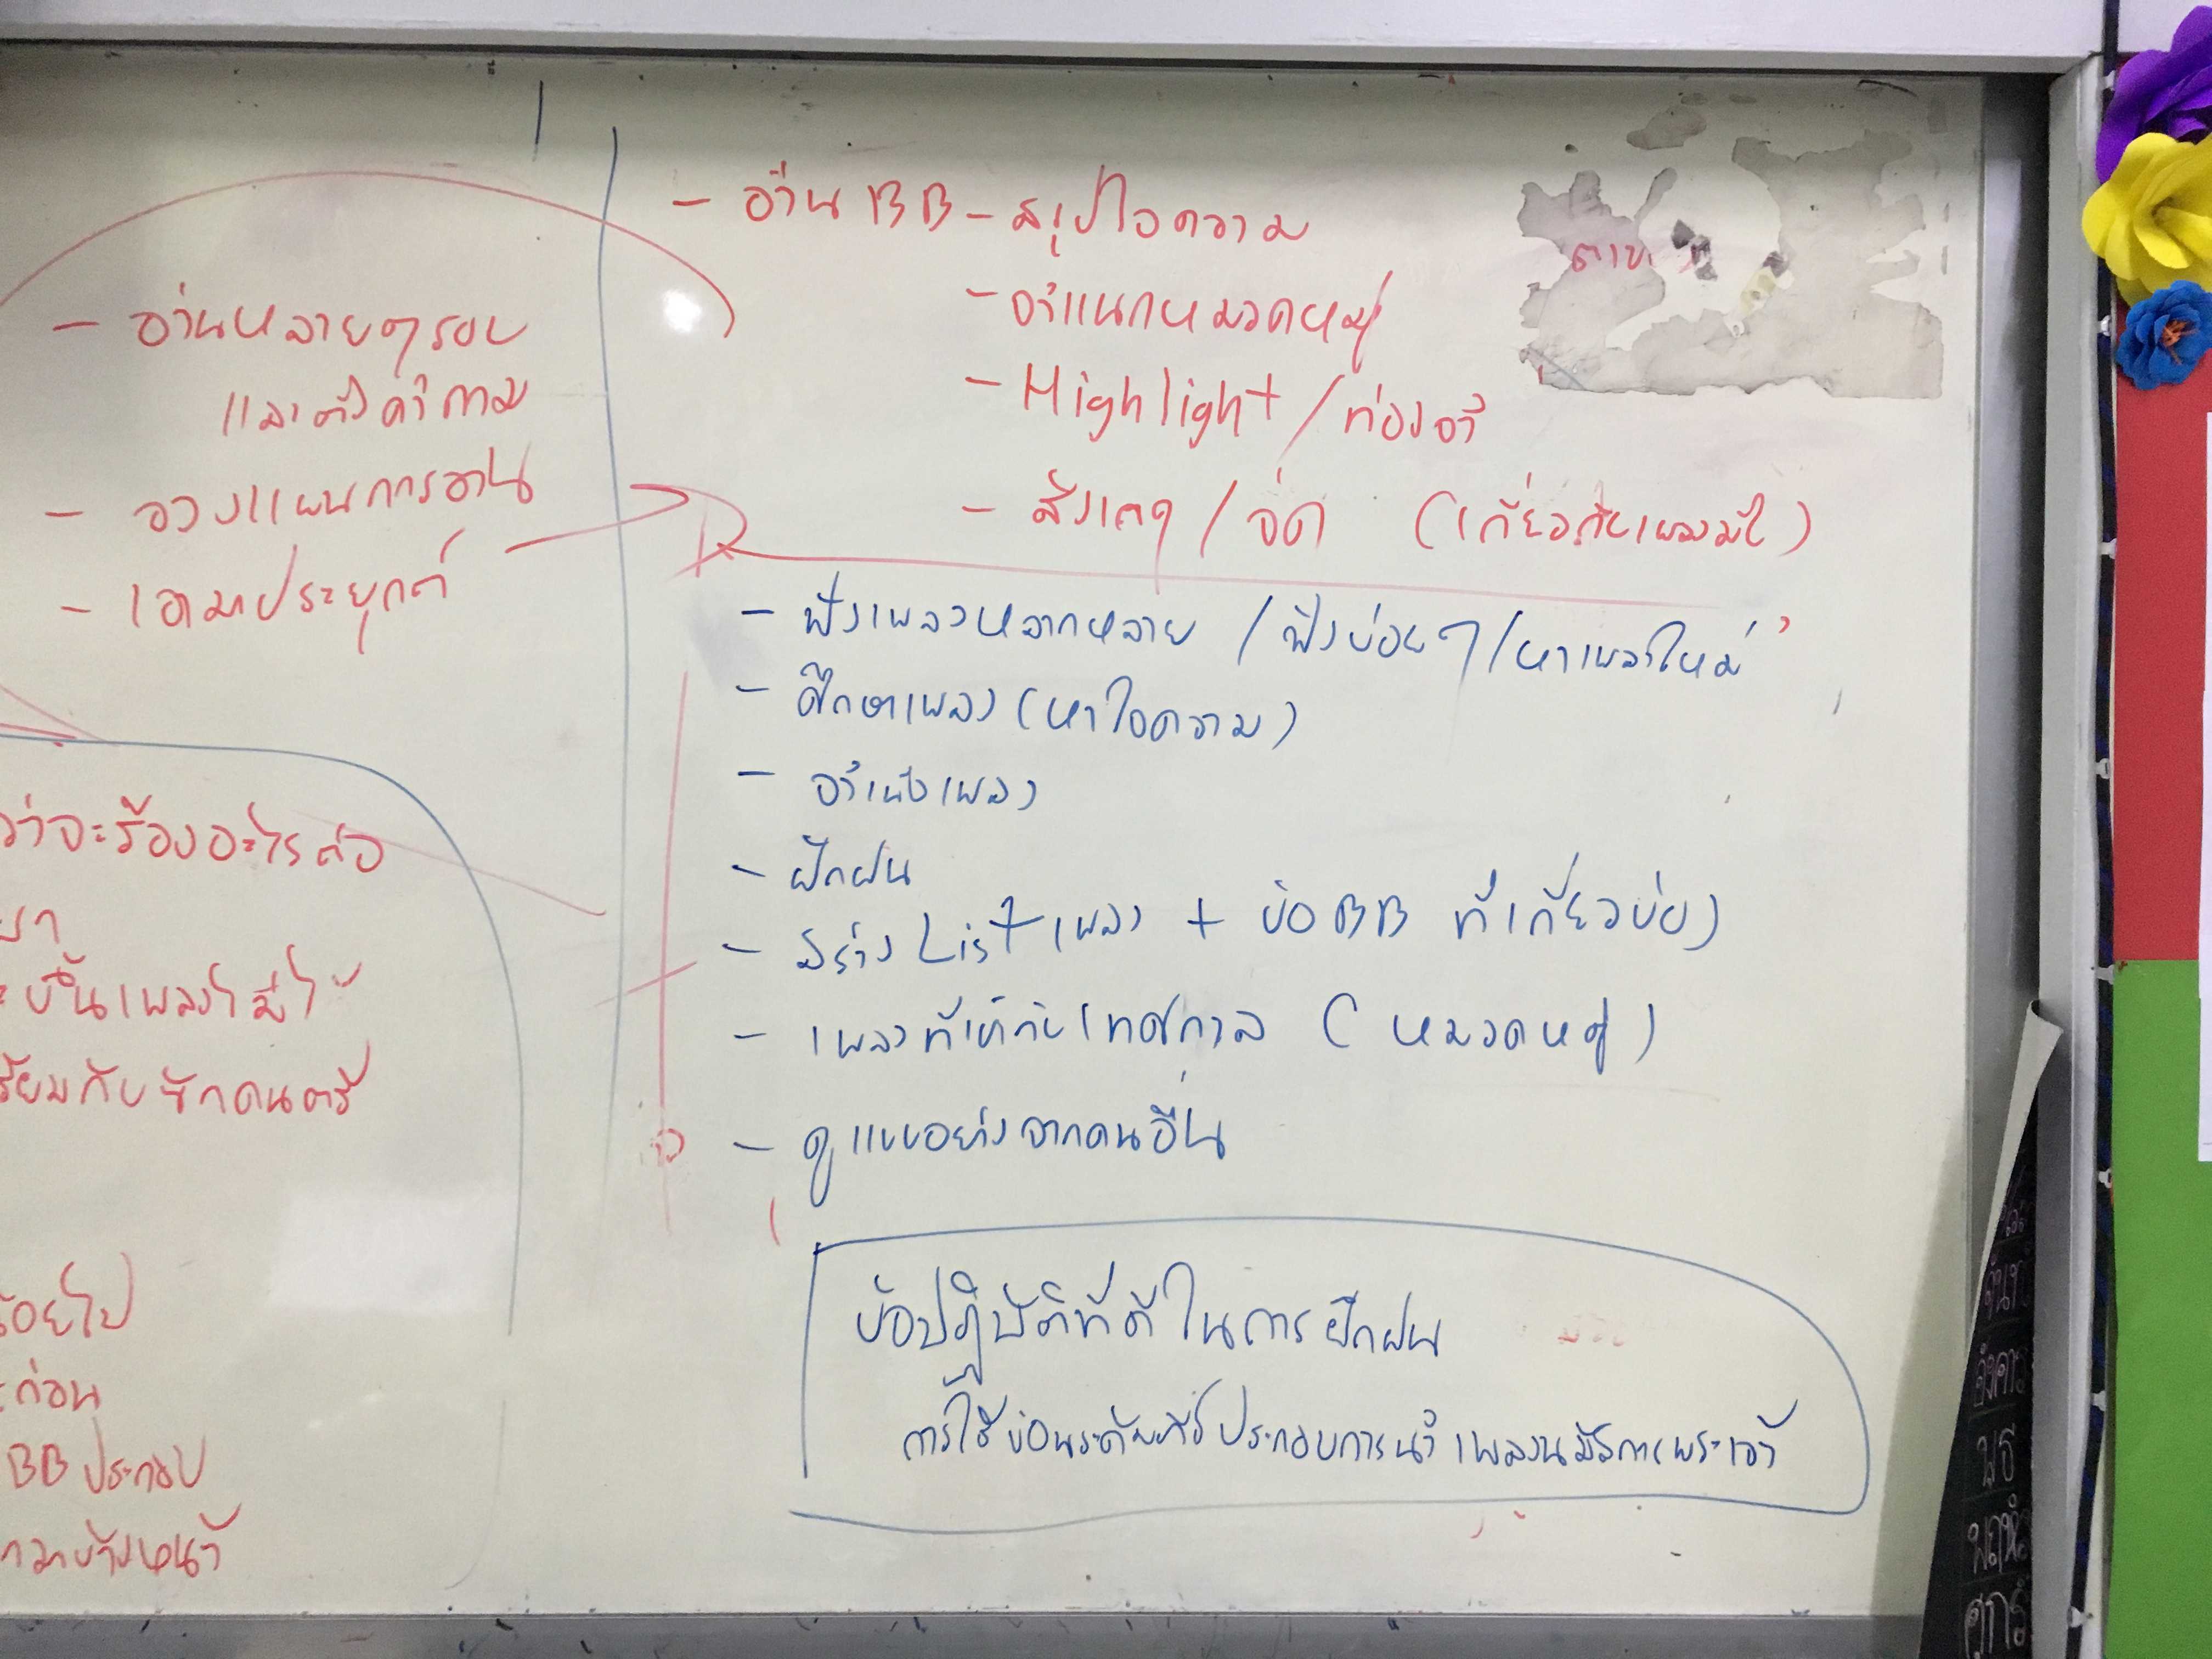 - อ่านหลายๆรอบ
และตั้งคำถาม
- วางแผนการอ่าน
- เอามาประยุกต์
ว่าจะร้องอะไรต่อ
ขึ้นเพลงไม่ได้
กับนักดนตรี
น้อยไป
ก่อน
BB ประกอบ
มาข้างหน้า
- อ่าน BB - สรุปใจความ
- จำแนกหมวดหมู่
- Highlight / ท่องจำ
- สังเกต / จด (เกี่ยวกับเพลงมั้ย)
- ฟังเพลงหลากหลาย / ฟังบ่อยๆ / หาเพลงใหม่
- ศึกษาเพลง (หาใจความ)
- จำเนื้อเพลง
- ฝึกฝน
- สร้าง List เพลง + ข้อ BB ที่เกี่ยวข้อง
- เพลงที่เข้ากับเทศกาล (หมวดหมู่)
- ดูแบบอย่างจากคนอื่น
ข้อปฏิบัติที่ดีในการฝึกฝน
การใช้ข้อพระคัมภีร์ประกอบการนำเพลงนมัสการพระเจ้า
จันทร์
อังคาร
พุธ
พฤหัส
ศุกร์